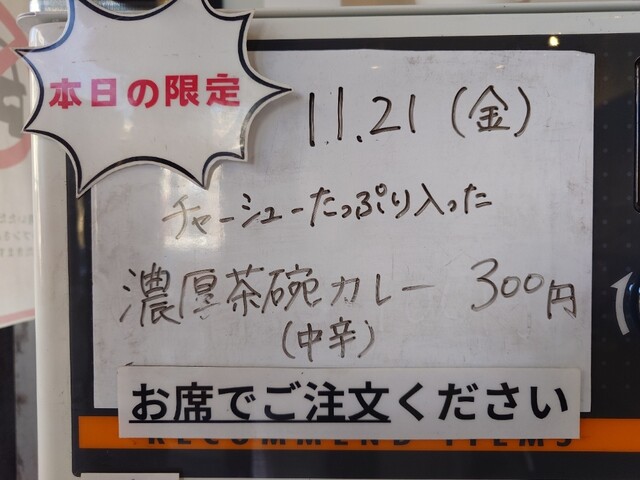 本日の限定
11.21(金)
チャーシューたっぷり入った
濃厚茶碗カレー 300円
(中辛)
お席でご注文ください
RECOMMEND ITEMS